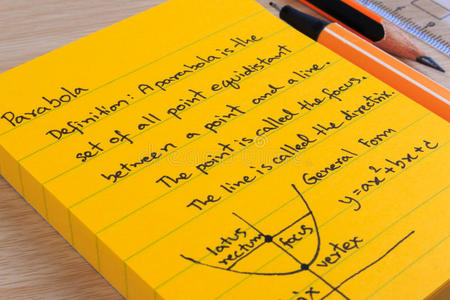 Parabola
Definition: A parabola is the
set of all point equidistant
between a point and a line.
The point is called the focus.
The line is called the directrix.
General Form
y=ax²+bx+c
latus
rectum
focus
vertex